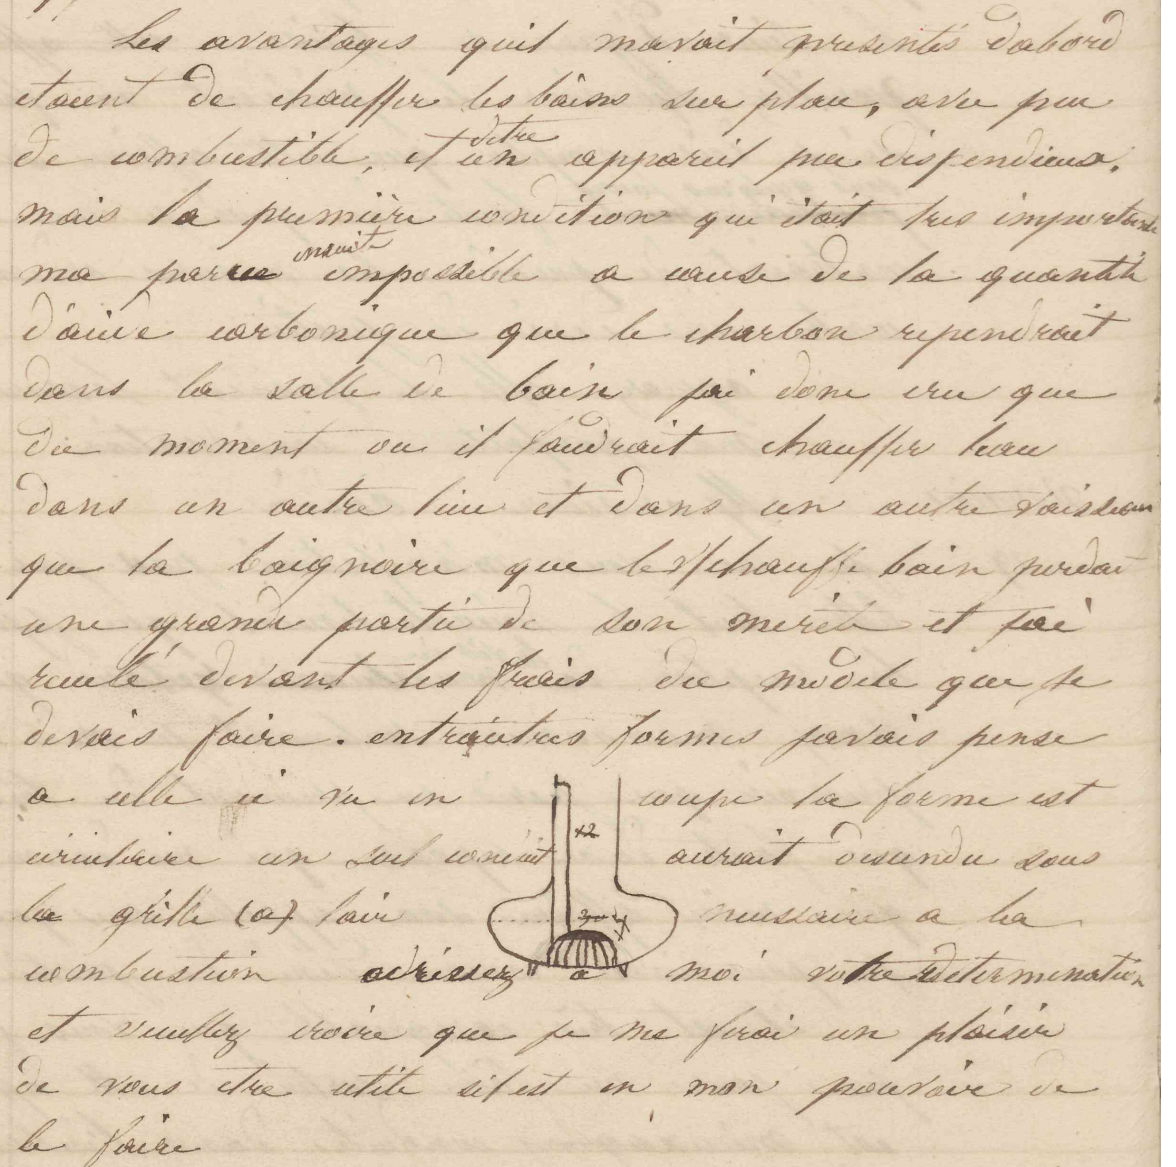 Les avantages quil mavait presentés dabord
etaient de chauffer les bains sur place, avec peu
de combustible, et detre un appareil peu dispendieux.
mais la première condition qui était tres importante
ma parue ensuite impossible a cause de la quantité
d'acide carbonique que le charbon rependrait
dans la salle de bain jai donc cru que
du moment ou il faudrait chauffer leau
dans un autre lieu et dans un autre vaisseau
que la baignoire que le chauffe bain perdait
une grande partie de son mérite et jai
reculé devant les frais du modele que je
devais faire. entr'autres formes javais pensé
a celle ci vu en coupe la forme est
circulaire un seul conduit aurait descendu sous
la grille (a) lair necessaire a la
combustion adressez a moi votre determination
et veuillez croire que je me ferai un plaisir
de vous etre utile sil est en mon pouvoir de
le faire